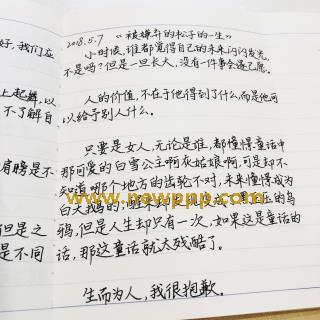 好，我们在
上起解，以
不了解自
膀是不
但是之
是不同
2018.5.7 “被嫌弃的松子的一生”
小时候，谁都觉得自己的未来闪闪发光，
不是吗？但是一旦长大，没有一件事会遂己愿。
人的价值，不在于他得到了什么，而是他可
以给予别人什么。
只要是女人，无论是谁，都憧憬童话中
那可爱的白雪公主啊灰姑娘啊，可是却不
知道哪个地方的齿轮不对，未来憧憬成为
白天鹅的；醒来 的乌
鸦，但是人生却只有一次，如果这是童话的
话，那这童话就太残酷了。
生而为人，我很抱歉。
www.newppp.com